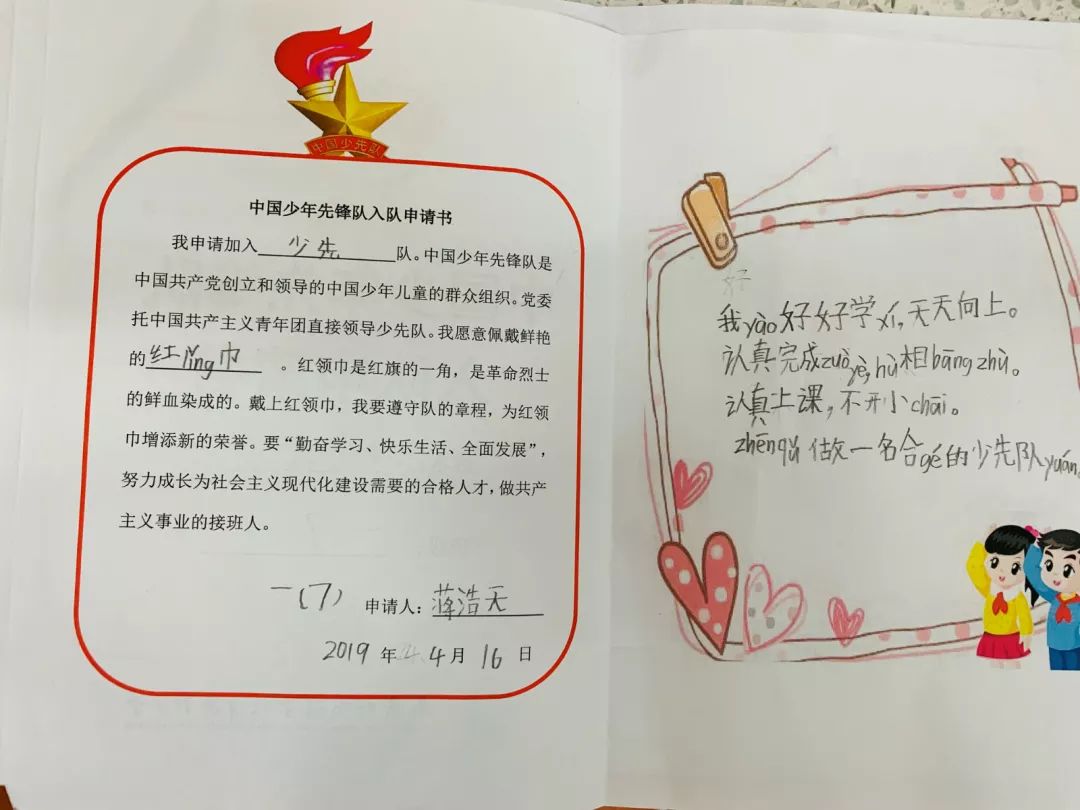 中国少先队
中国少年先锋队入队申请书
我申请加入少先队。中国少年先锋队是
中国共产党创立和领导的中国少年儿童的群众组织。党委
托中国共产主义青年团直接领导少先队。我愿意佩戴鲜艳
的红lǐng巾。红领巾是红旗的一角，是革命烈士
的鲜血染成的。戴上红领巾，我要遵守队的章程，为红领
巾增添新的荣誉。要“勤奋学习、快乐生活、全面发展”，
努力成长为社会主义现代化建设需要的合格人才，做共产
主义事业的接班人。
一(7) 申请人：蒋浩天
2019年4月16日
好
我yào好好学xí，天天向上。
认真完成zuò yè，hù相bāng zhù。
认真上课，不开小chāi。
zhēng qǔ做一名合gé的少先队yuán。